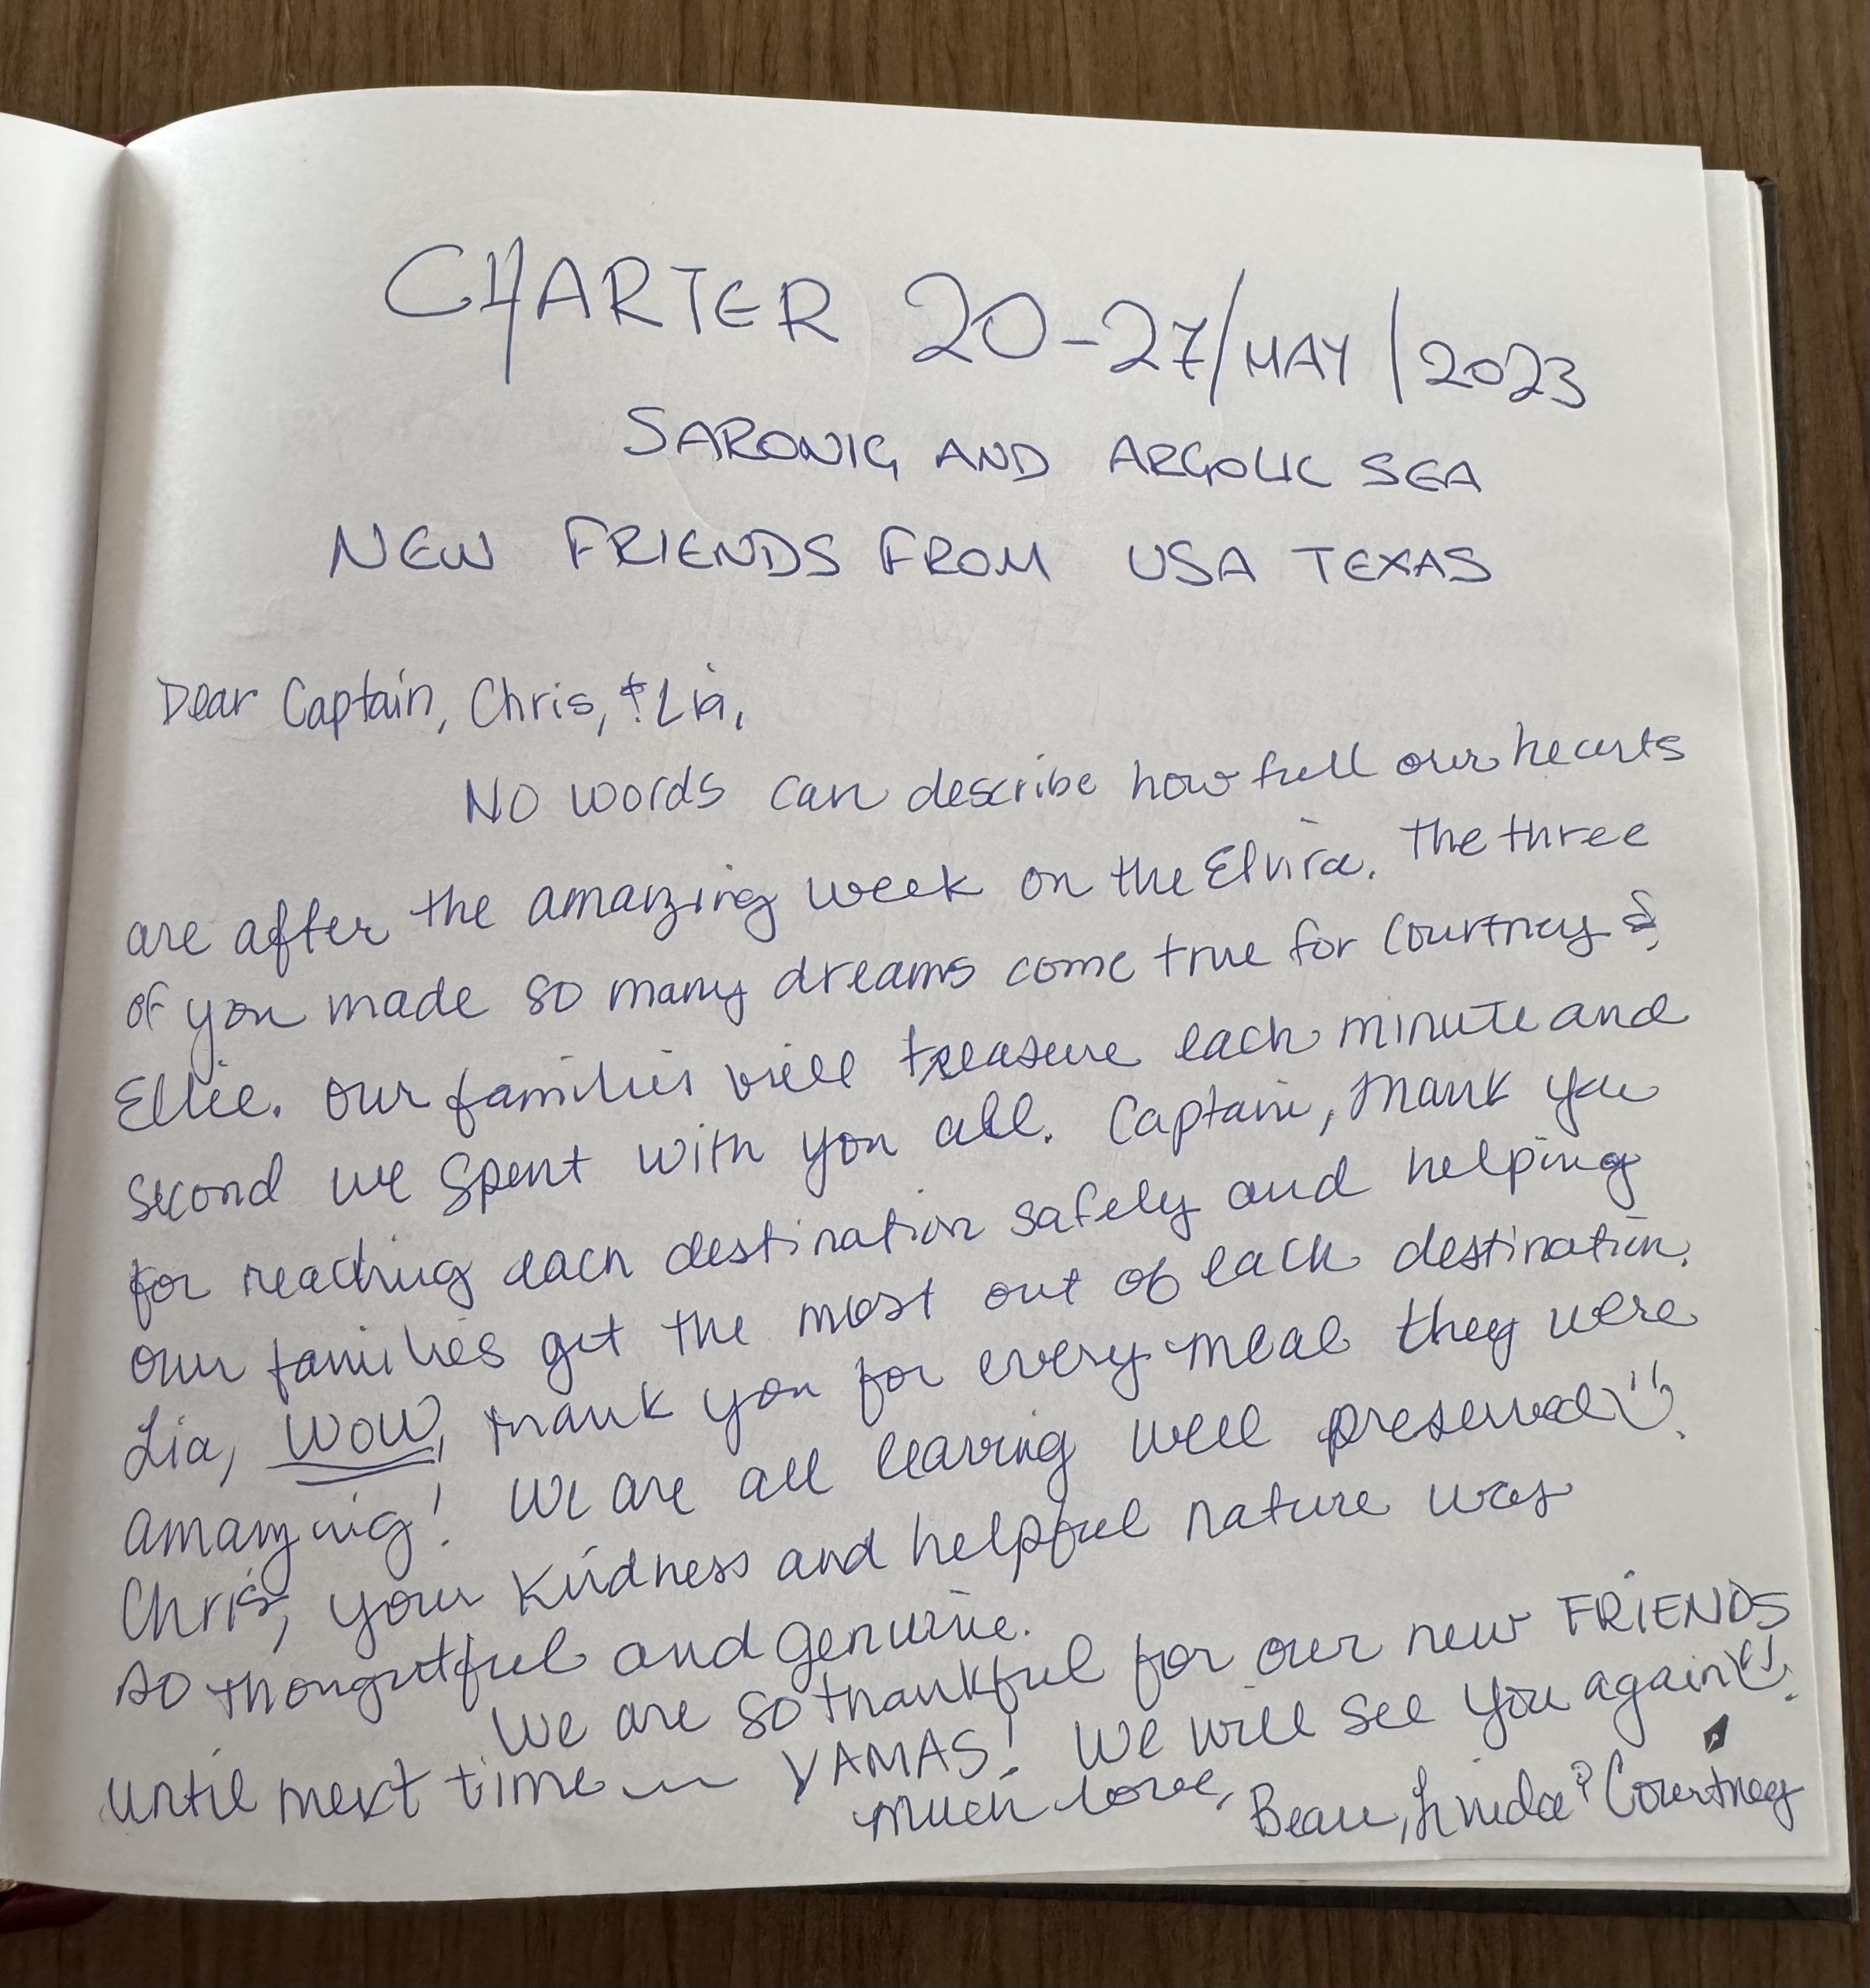 CHARTER 20-27/MAY/2023
SARONIG AND ARGOLIC SEA
NEW FRIENDS FROM USA TEXAS
Dear Captain, Chris, & Lia,
No words can describe how full our hearts
are after the amazing week on the Elvira. The three
of you made so many dreams come true for Courtney &
Ellie. Our families will treasure each minute and
second we spent with you all. Captain, thank you
for reaching each destination safely and helping
our families get the most out of each destination.
Lia, WOW, thank you for every meal they were
amazing! We are all leaving well preserved :).
Chris, your kindness and helpful nature was
so thoughtful and genuine.
We are so thankful for our new FRIENDS
until next time ~ YAMAS! We will see you again :).
Much love, Beau, Linda & Courtney